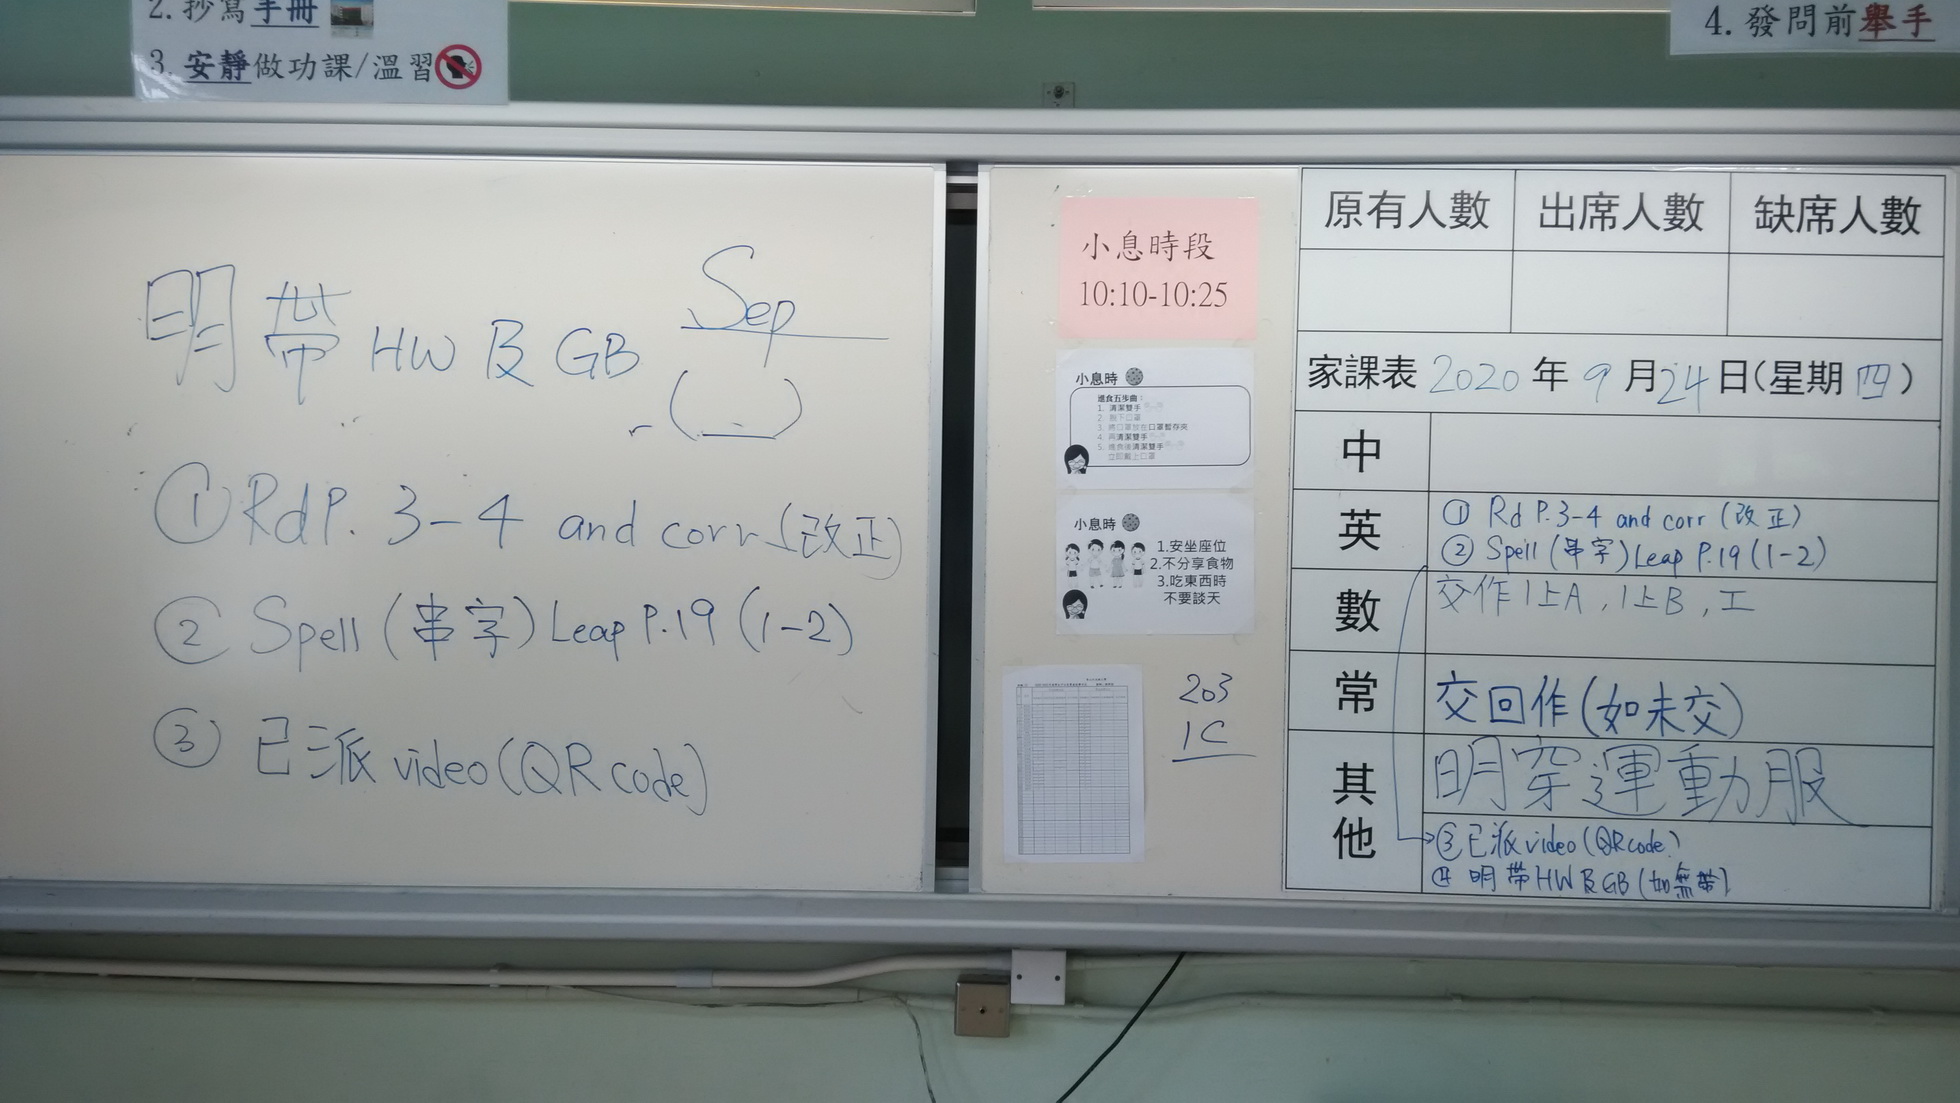 2. 抄寫手冊
3. 安靜做功課/溫習
4. 發問前舉手
明帶 HW 及 GB
Sep
( )
① Rd P. 3-4 and corr (改正)
② Spell (串字) Leap P.19 (1-2)
③ 已派 video (QR code)
小息時段
10:10-10:25
小息時
進食五步曲：
1. 清潔雙手
2. 脫下口罩
3. 將口罩放在口罩暫存夾
4. 再清潔雙手
5. 進食後清潔雙手
立即戴上口罩
小息時
1.安坐座位
2.不分享食物
3.吃東西時
不要談天
203
1C
原有人數 出席人數 缺席人數
家課表 2020 年 9 月 24 日(星期 四 )
中
英 ① Rd P.3-4 and corr (改正)
② Spell (串字) Leap P.19 (1-2)
數 交作1上A , 1上B , 工
常 交回作(如未交)
其他 明穿運動服
③ 已派 video (QR code)
④ 明帶 HW 及 GB (如無帶)